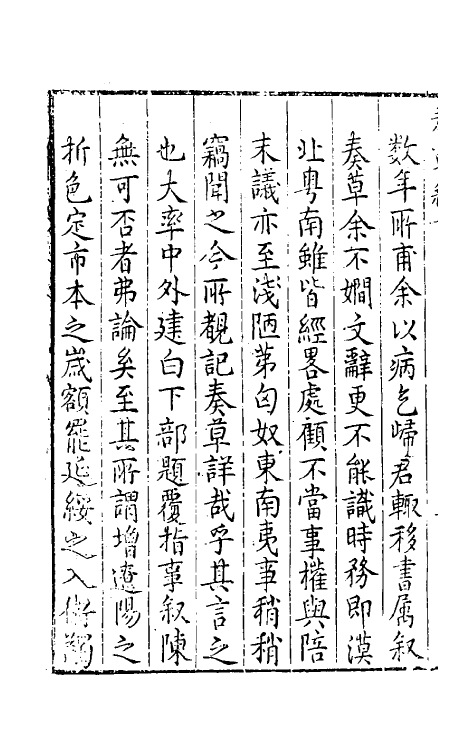 数年所甫余以病乞歸君輙移書属叙
奏草余不嫺文辭更不能識時務即漠
北粤南雖皆經畧處顧不當事權與陪
末議亦至淺陋苐匈奴東南夷事稍稍
竊聞之今所覩記奏草詳哉乎其言之
也大率中外建白下部題覆指事叙陳
無可否者弗論矣至其所謂增遼陽之
折色定市本之嵗額罷延綏之入衞蠲